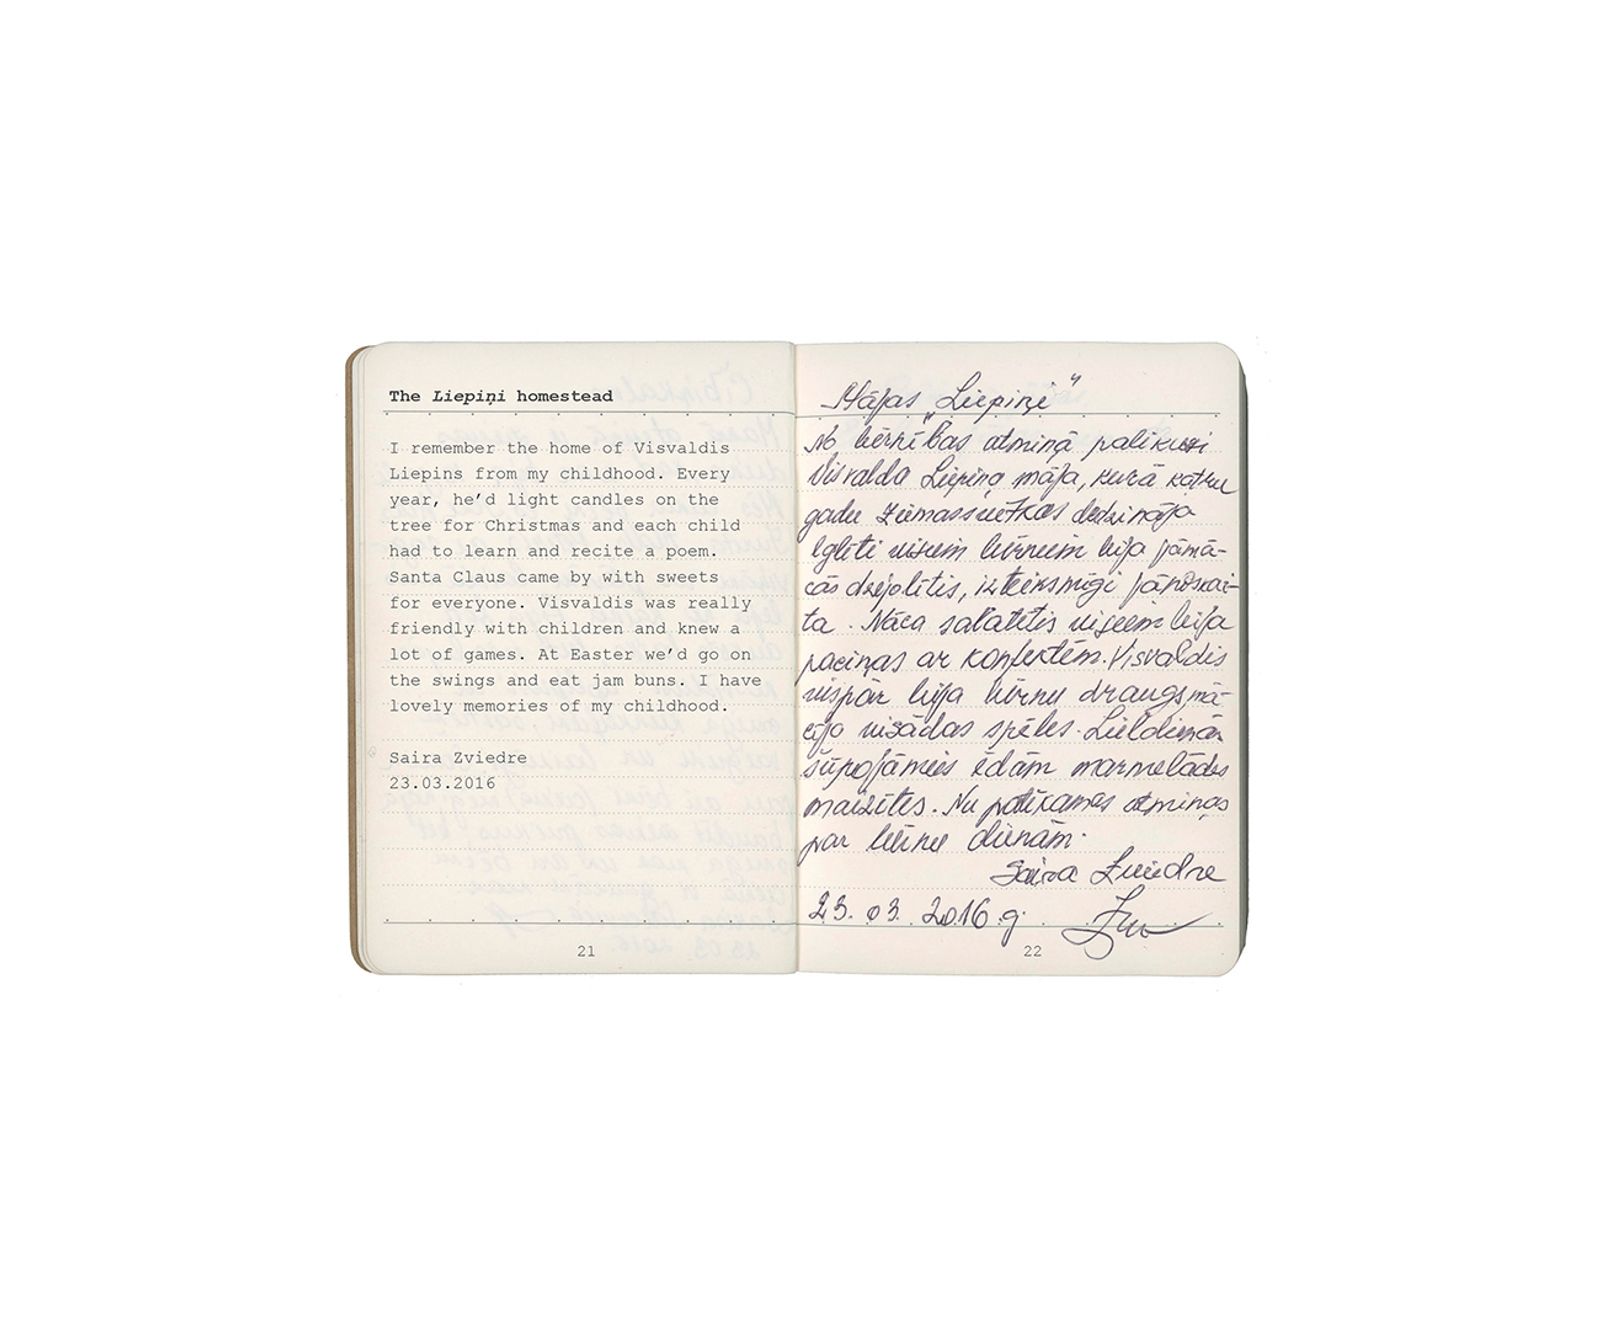 The Liepiņi homestead
I remember the home of Visvaldis
Liepins from my childhood. Every
year, he’d light candles on the
tree for Christmas and each child
had to learn and recite a poem.
Santa Claus came by with sweets
for everyone. Visvaldis was really
friendly with children and knew a
lot of games. At Easter we’d go on
the swings and eat jam buns. I have
lovely memories of my childhood.
Saira Zviedre
23.03.2016
21
Mājas „Liepiņi"
No bērnības atmiņā palikusi
Visvalda Liepiņa māja, kurā katru
gadu Ziemassvētkos dedzināja
eglīti visiem bērniem bija jāmā-
cās dzejolītis, izteiksmīgi jānoskai-
ta. Nāca salatētis visiem bija
paciņas ar konfektēm. Visvaldis
vispār bija bērnu draugs mā-
cīja visādas spēles. Lieldienās
šūpojāmies ēdām marmelādes
maizītes. Nu patīkamas atmiņas
par bērnu dienām.
Saira Zviedre
23. 03. 2016.g.
22